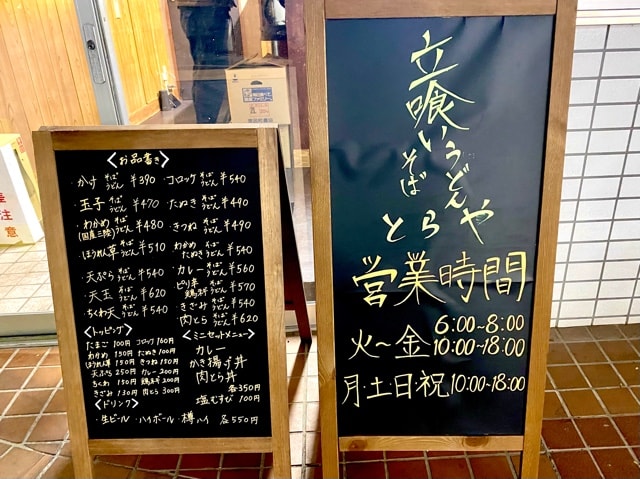 〈お品書き〉
・かけ そば うどん ¥390
・コロッケ そば うどん ¥540
・玉子 そば うどん ¥470
・たぬき そば うどん ¥490
・わかめ (国産三陸) そば うどん ¥480
・きつね そば うどん ¥490
・ほうれん草 そば うどん ¥510
・わかめ たぬき そば うどん ¥540
・天ぷら そば うどん ¥540
・カレー そば うどん ¥560
・天玉 そば うどん ¥620
・ピリ辛 鶏 そば うどん ¥570
・ちくわ天 そば うどん ¥540
・きざみ そば うどん ¥540
・肉とら そば うどん ¥620
〈トッピング〉
たまご 100円 コロッケ 160円
わかめ 150円 たぬき 100円
ほうれん草 150円 きつね 150円
天ぷら 250円 カレー 200円
ちくわ 150円 200円
きざみ 130円 肉とら 300円
〈ミニセットメニュー〉
カレー
かき揚げ丼
肉とら丼
各350円
塩むすび 100円
〈ドリンク〉
・生ビール・ハイボール・樽ハイ 各550円
立喰いうどん そば とらや
営業時間
火～金 6:00～8:00
10:00～18:00
月・土・日・祝 10:00～18:00
注意